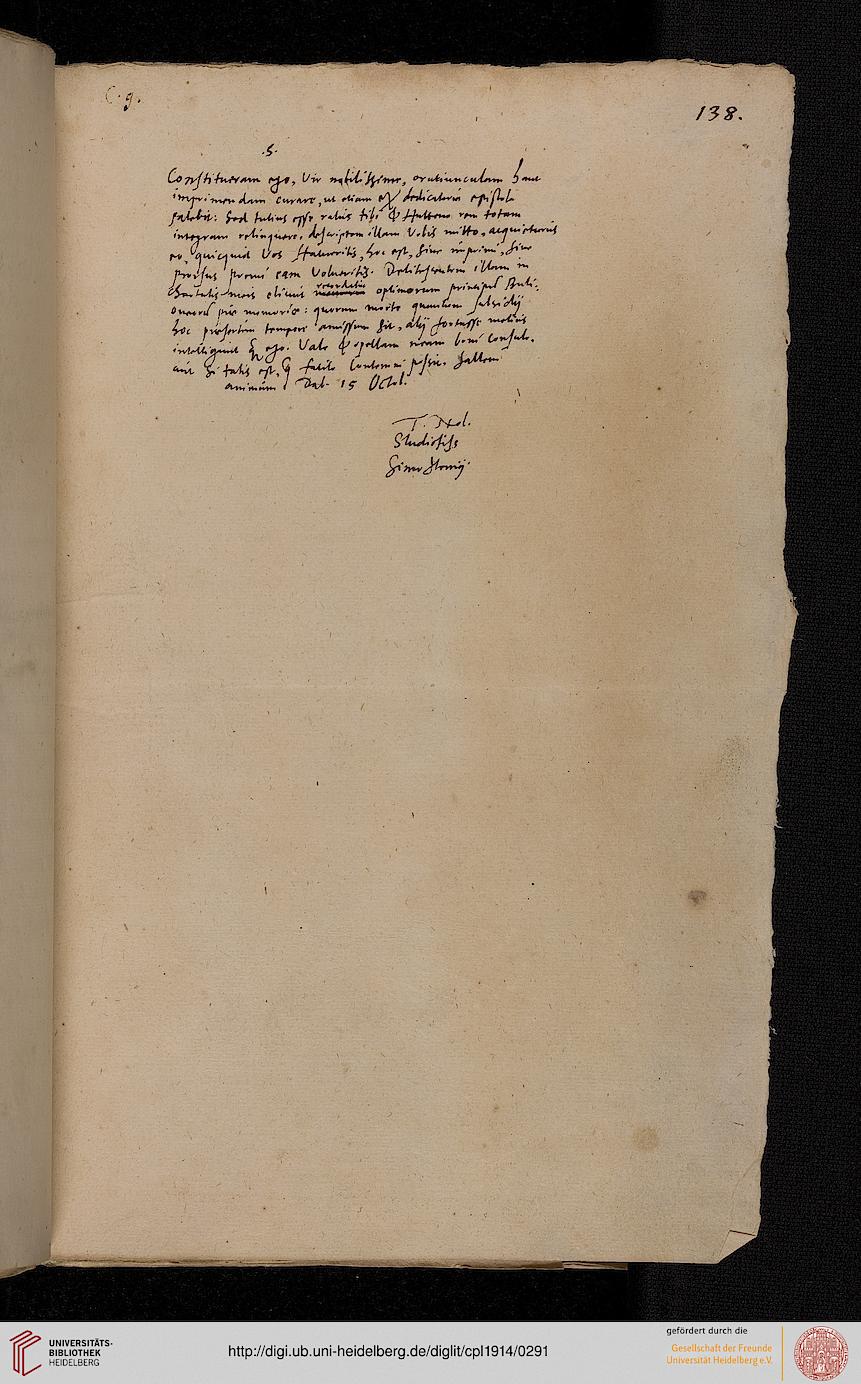 C. 9.
138.
.S.
Constitueram ego, Vir nobilissime, oratiunculam hanc
imprimendam curare, ut etiam ex dedicatoria epistola
patebit: sed tutius esse ratus tibi & Hutteno rem totam
integram relinquere, descriptam illam Vobis mitto, acquieturus
eo, quicquid Vos statueritis, hoc est, sive imprimi, sive
prorsus premi eam Volueritis. Delitescentem illam in
chartulis meis elicuit recordatio optimorum principum
piae memoriae: quorum morte quantum subsidij
hoc praesertim tempore amissum sit, alij fortasse melius
intelligunt quam ego. Vale & opellam meam boni consule,
aut si talis est, quae facile contemni possit, saltem
animum. Dat. 15 Octob.
T. Nob.
Studiosiss
UNIVERSITÄTS-
BIBLIOTHEK
HEIDELBERG
http://digi.ub.uni-heidelberg.de/diglit/cpl1914/0291
gefördert durch die
Gesellschaft der Freunde
Universität Heidelberg e.V.